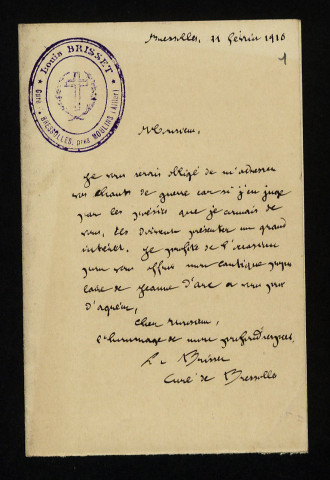 Louis BRISSET
Curé
BRESSOLLES, près MOULINS (Allier)
Bressolles, 11 février 1916
1
Monsieur,
Je vous serais obligé de m'adresser
vos chants de guerre car si j'en juge
par les poésies que je connais de
vous, ils doivent présenter un grand
intérêt. Je profite de l'occasion
pour vous offrir mon cantique popu
laire de Jeanne d'Arc et vous prie
d'agréer,
cher monsieur,
l'hommage de mon profond respect,
L. Brisset
Curé de Bressolles